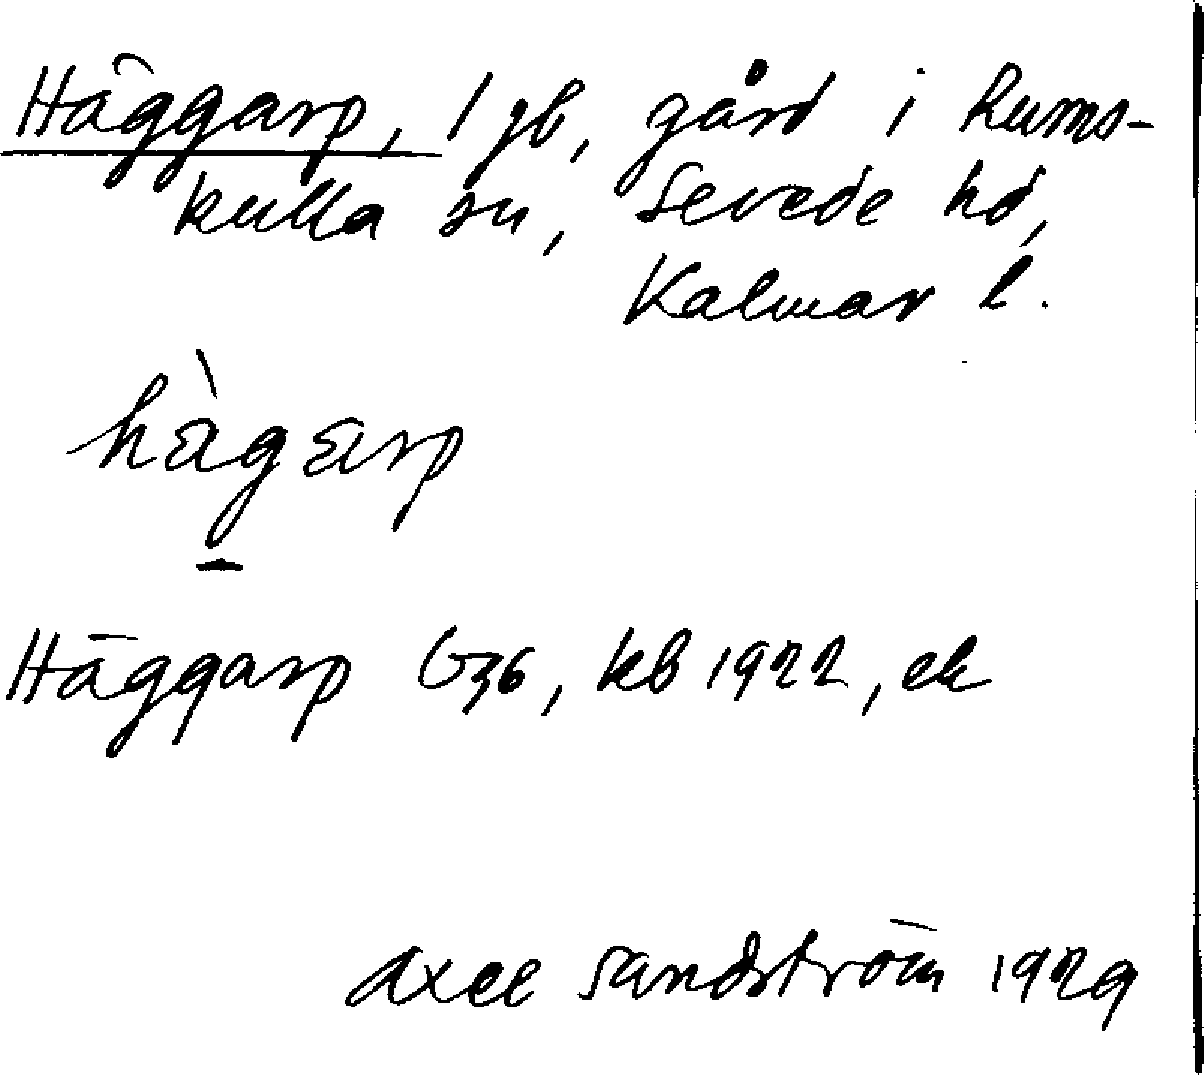 Häggarp, 1 gb, gård i Rums-
kulla sn, Sevede hd,
Kalmar l.
hàgarp
Häggarp G36, kb 1922, ek
Axel Sandström 1929